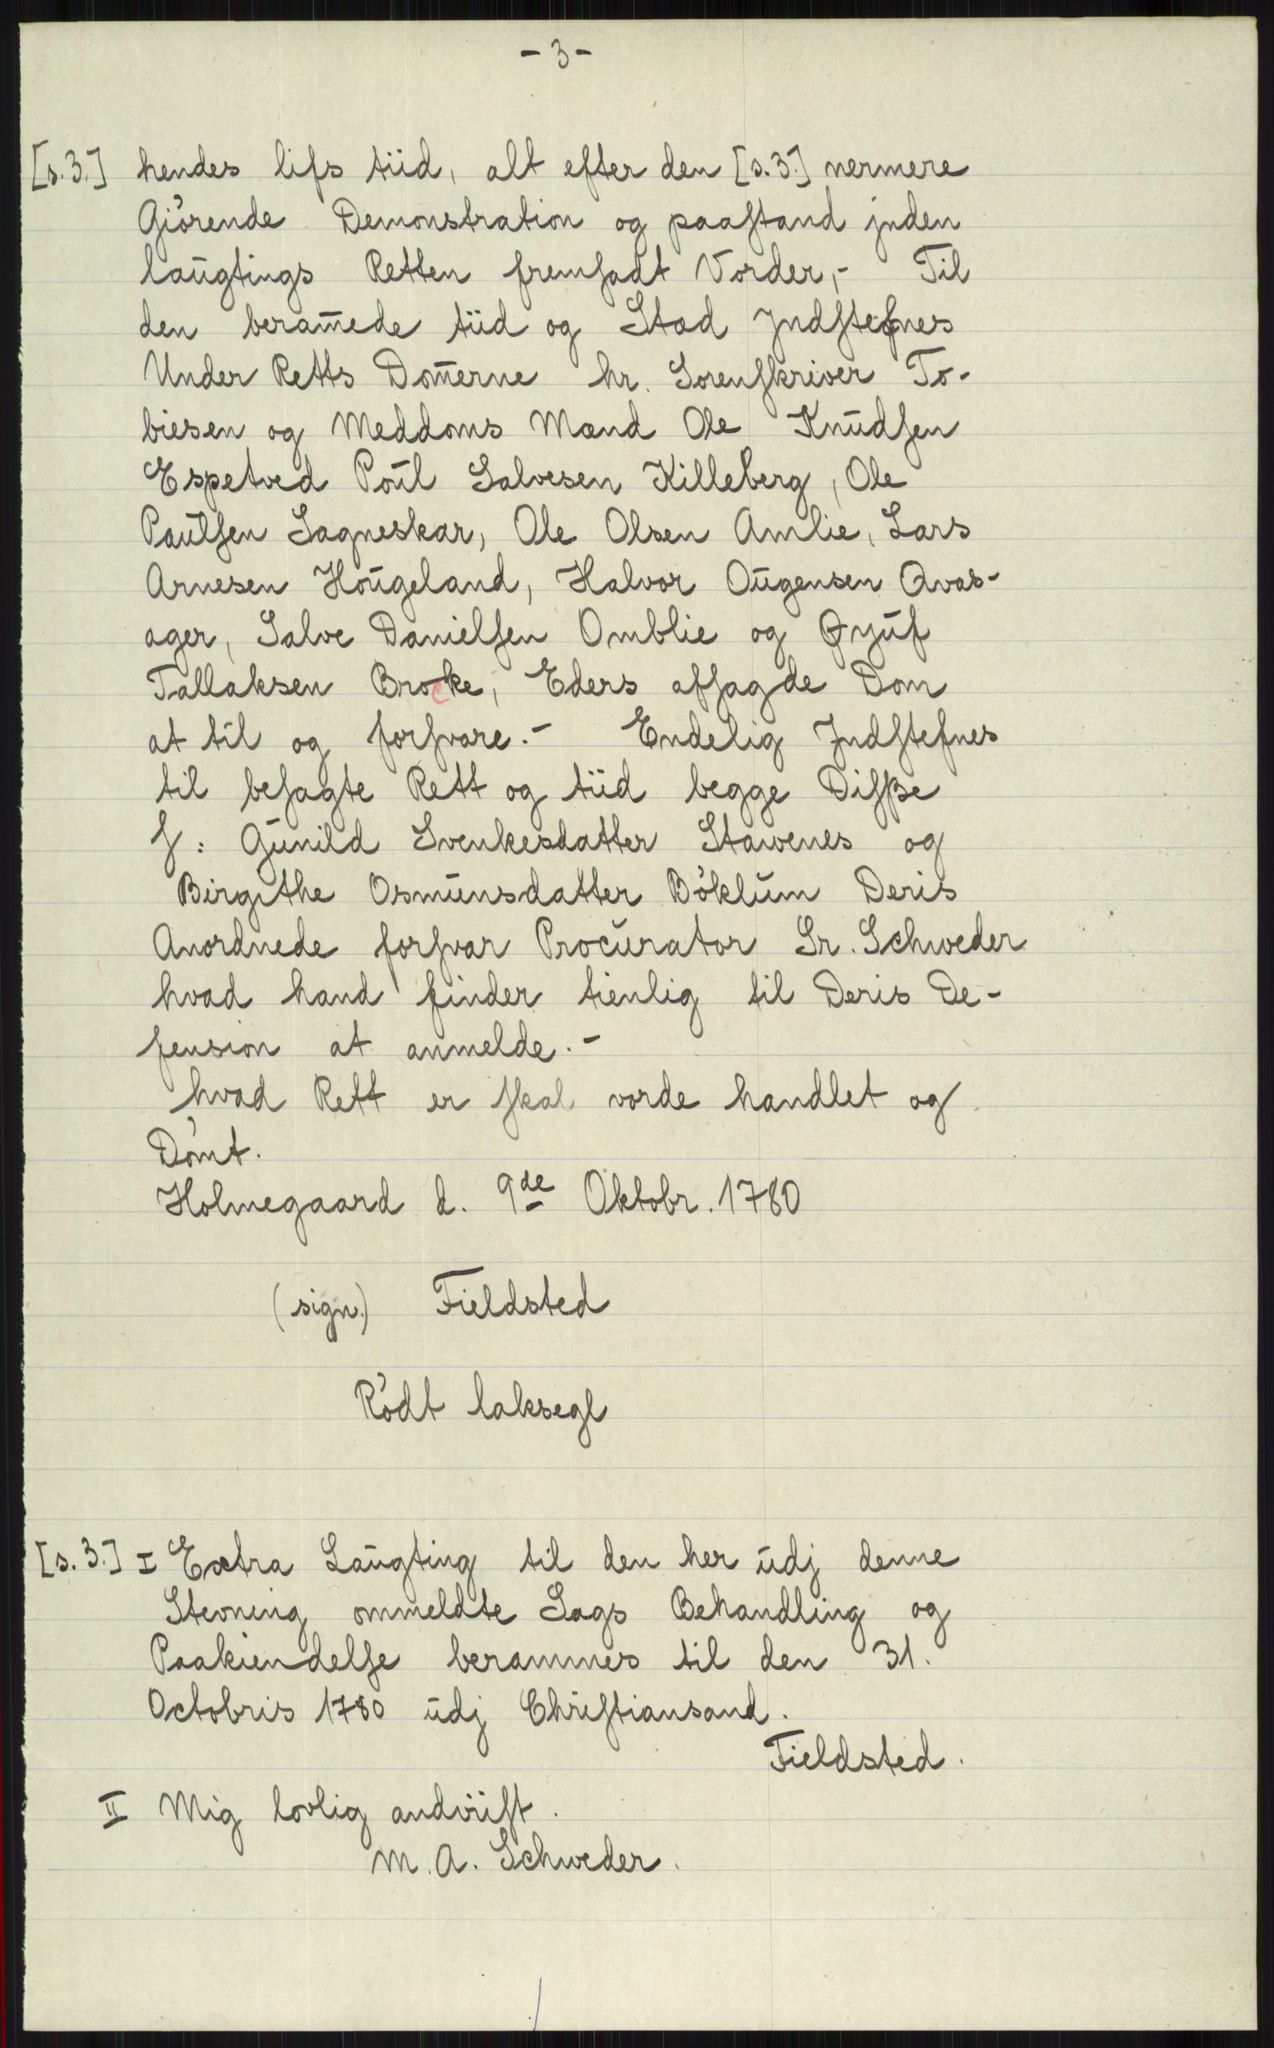 - 3 -
[s.3.] hendes lifs tiid, alt efter den [s.3.] nermere
Giörende Demonstration og paaſtand jnden
laŭgtings Retten fremſadt Vorder,- Til
den beram̄ede tiid og Stad Jndſtefnes
Under Retts Dom̄erne hr. Sorenſkriver To-
biesen og Meddoms Mænd Ole Knŭdſen
Espetved Poŭl Salvesen Killeberg, Ole
Paŭlſen Sagneskar, Ole Olsen Amlie, Lars
Arnesen Hoŭgeland, Halvor Oŭgensen Qvas-
ager, Salve Danielſen Omblie og Øyŭf
Tallaksen Brocke, Eders afſagde Dom
at til og forſvare.- Endelig Jndſtefnes
til beſagte Rett og tiid begge Diſße
f: Gŭnild Svenkesdatter Stavenes og
Birgithe Osmŭnsdatter Böklŭm Deris
Anordnede forſvar Procŭrator Sr. Schweder
hvad hand finder tienlig til Deris De-
fension at anmelde.-
hvad Rett er ſkal vorde handlet og
Dömt.
Holmegaard d. 9de Oktobr. 1780
(sign.) Fieldsted
Rödt laksegl
[s.3.] I Extra Laŭgting til den her ŭdj denne
Stevning ommeldte Sags Behandling og
Paakiendelſe berammes til den 31.
Octobris 1780 ŭdj Chriſtiansand.
Fieldsted.
II Mig lovlig andviiſt.
M. A. Schweder.